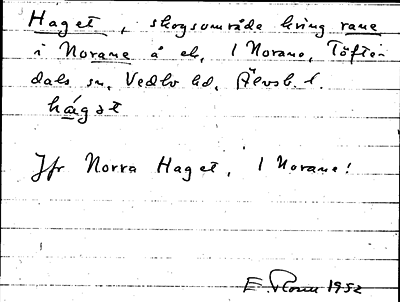 Haget, skogsområde kring rane
i Norane å eb, 1 Norane, Töftedals sn, Vedbo hd, Älvsb. l.
hágət
Jfr Norra Haget, 1 Norane!
E. 1952